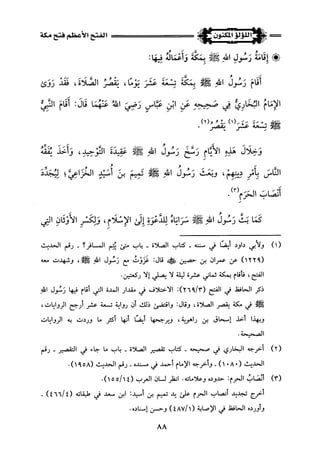 اللؤلؤ المكنون
الفتح الأعظم فتح مكة
* إِقَامَةُ رَسُولِ اللهِ ﷺ بِمَكَّةَ وَأَعْمَالُهُ فِيهَا:
أَقَامَ رَسُولُ اللهِ ﷺ بِمَكَّةَ تِسْعَةَ عَشَرَ يَوْمًا، يَقْصُرُ الصَّلَاةَ، فَقَدْ رَوَى
الإِمَامُ البُخَارِيُّ فِي صَحِيحِهِ عَنِ ابْنِ عَبَّاسٍ رَضِيَ اللهُ عَنْهُمَا قَالَ: أَقَامَ النَّبِيُّ
ﷺ تِسْعَةَ عَشَرَ(١) يَقْصُرُ(٢).
وَخِلَالَ هَذِهِ الأَيَّامِ رَسَّخَ رَسُولُ اللهِ ﷺ عَقِيدَةَ التَّوْحِيدِ، وَأَخَذَ يُفَقِّهُ
النَّاسَ بِأَمْرِ دِينِهِمْ، وَبَعَثَ رَسُولُ اللهِ ﷺ تَمِيمَ بنَ أُسَيْدٍ الخُزَاعِيَّ؛ لِيُجَدِّدَ
أَنْصَابَ الحَرَمِ(٣).
كَمَا بَثَّ رَسُولُ اللهِ ﷺ سَرَايَاهُ لِلدَّعْوَةِ إِلَى الإِسْلَامِ، وَلِكَسْرِ الأَوْثَانِ التِي
(١) ولأبي داود أيضًا في سننه - كتاب الصلاة - باب متى يتم المسافر؟ - رقم الحديث
(١٢٢٩) عن عمران بن حصين ﷺ قال: غَزَوْتُ مع رسول الله ﷺ، وشهدت معه
الفتح، فأقام بمكة ثماني عشرة ليلة لا يصلي إلا ركعتين.
ذكر الحافظ في الفتح (٢٦٩/٣): الاختلاف في مقدار المدة التي أقام فيها رسول الله
ﷺ في مكة يقصر الصلاة، وقال: واقتضى ذلك أن رواية تسعة عشر أرجح الروايات،
وبهذا أخذ إسحاق بن راهوية، ويرجحها أيضًا أنها أكثر ما وردت به الروايات
الصحيحة.
(٢) أخرجه البخاري في صحيحه - كتاب تقصير الصلاة - باب ما جاء في التقصير - رقم
الحديث (١٠٨٠) - وأخرجه الإمام أحمد في مسنده - رقم الحديث (١٩٥٨).
(٣) أَنْصَابُ الحرم: حدوده وعلاماته. انظر لسان العرب (١٥٥/١٤).
أخرج تجديد أنصاب الحرم على يد تميم بن أسيد: ابن سعد في طبقاته (٤٦٦/٤) -
وأورده الحافظ في الإصابة (٤٨٧/١) وحسن إسناده.
٨٨